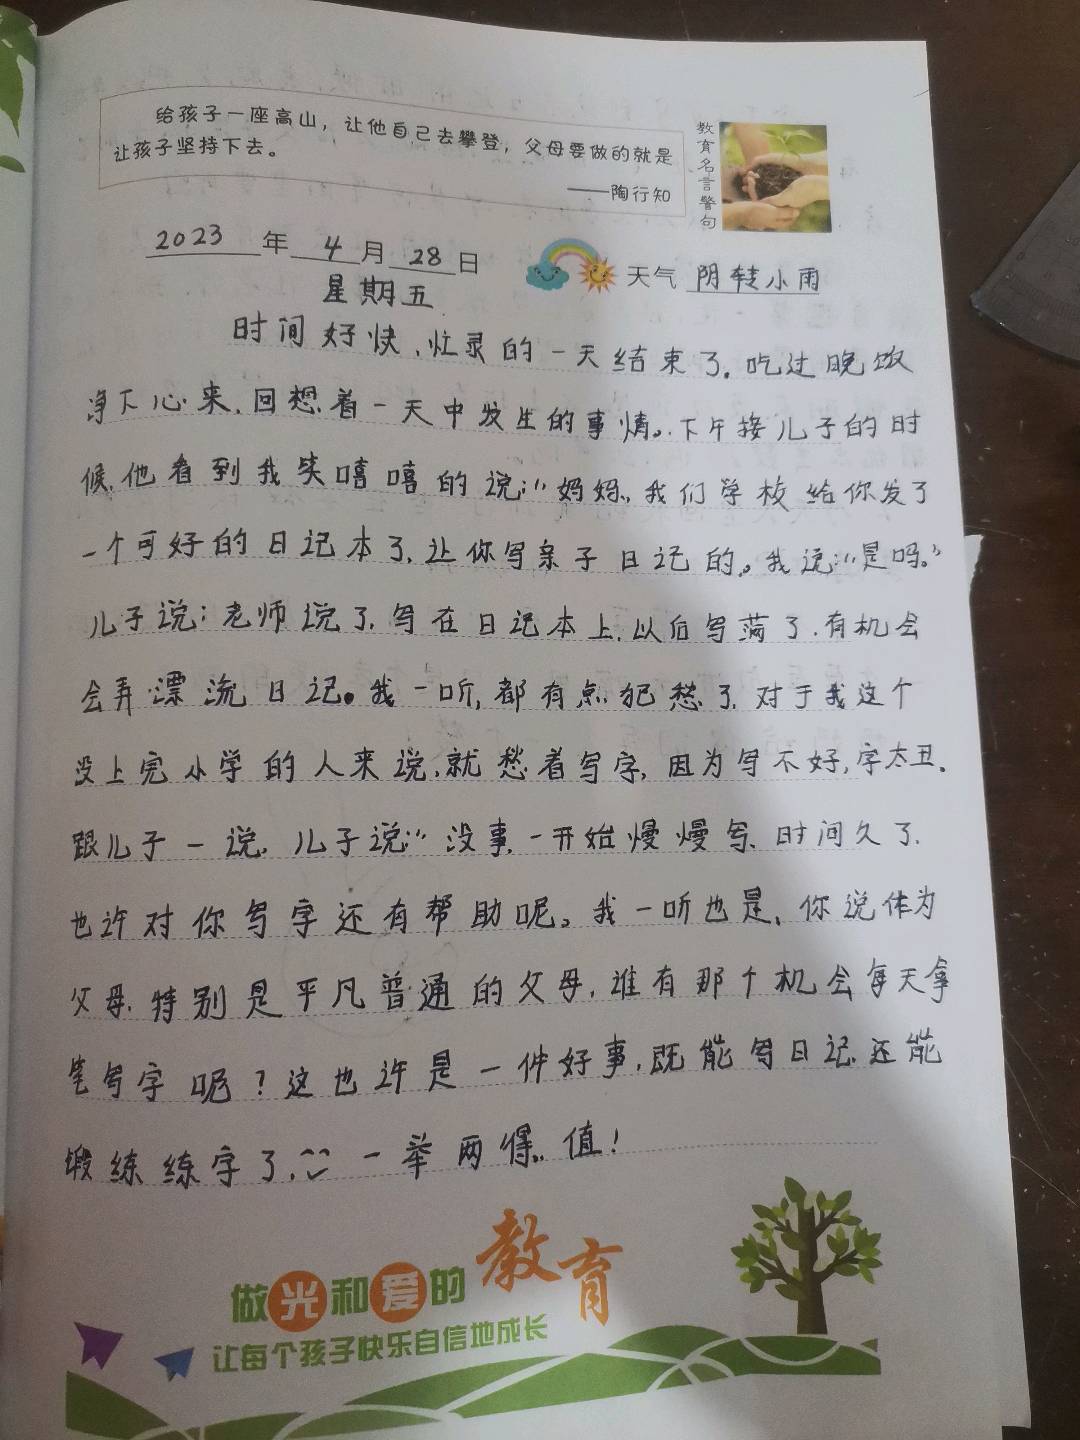 给孩子一座高山，让他自己去攀登，父母要做的就是
让孩子坚持下去。
——陶行知
教育名言警句
2023年4月28日
天气 阴转小雨
星期五
时间好快，忙录的一天结束了。吃过晚饭
净下心来，回想着一天中发生的事情。下午接儿子的时
候，他看到我笑嘻嘻的说：“妈妈，我们学校给你发了
一个可好的日记本了，让你写亲子日记的。我说：“是吗。”
儿子说：老师说了，写在日记本上，以后写满了，有机会
会弄漂流日记。我一听，都有点犯愁了，对于我这个
没上完小学的人来说，就愁着写字，因为写不好，字太丑。
跟儿子一说，儿子说：“没事，一开始慢慢写、时间久了，
也许对你写字还有帮助呢。我一听也是，你说作为
父母，特别是平凡普通的父母，谁有那个机会每天拿
笔写字呢？这也许是一件好事，既能写日记，还能
锻练练字了，一举两得。值！
做光和爱的教育
让每个孩子快乐自信地成长